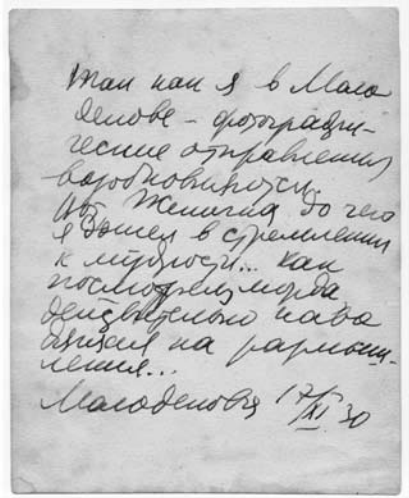 Так как я в Мало
делове – фотографи-
ческие отправления
возобновляются.
Вот Женичка до чего
я дошел в стремлении
к мудрости... как
посмотрел, морда
действительно нава
дящая на размыш-
ления...
17/XI 30